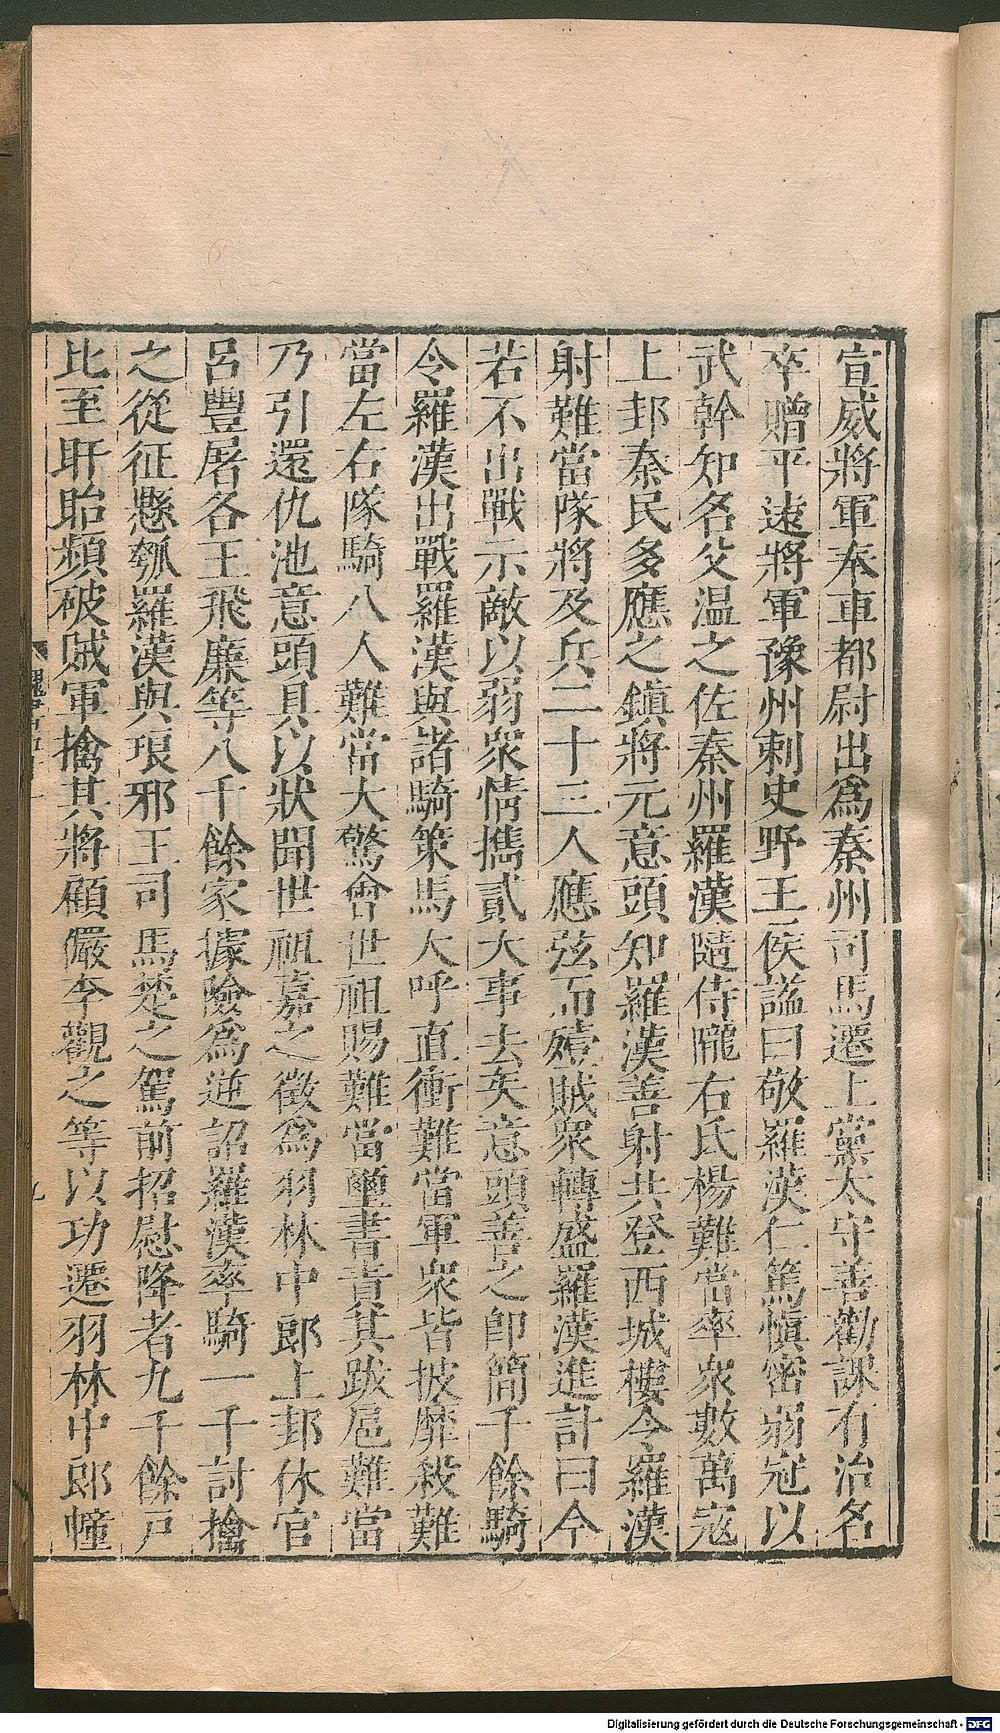 宣威將軍奉車都尉出爲秦州司馬遷上黨太守善勸課有治名
卒贈平遠將軍豫州刺史野王侯諡曰敬羅漢仁篤愼密弱冠以
武幹知名父温之佐秦州羅漢隨侍隴右氐楊難當率衆數萬寇
上邽秦民多應之鎭將元意頭知羅漢善射共登西城樓令羅漢
射難當隊將及兵二十三人應弦而殪賊衆轉盛羅漢進計曰今
若不出戰示敵以弱衆情攜貳大事去矣意頭善之卽簡千餘騎
令羅漢出戰羅漢與諸騎策馬大呼直衝難當軍衆皆披靡殺難
當左右隊騎八人難當大驚會世祖賜難當璽書責其跋扈難當
乃引還仇池意頭具以狀聞世祖嘉之徵爲羽林中郎上邽休官
呂豐屠各王飛廉等八千餘家據險爲逆詔羅漢率騎一千討擒
之從征懸瓠羅漢與琅邪王司馬楚之駕前招慰降者九千餘戸
比至盱眙頻破賊軍擒其將顧儼李觀之等以功遷羽林中郎幢
九
Digitalisierung gefördert durch die Deutsche Forschungsgemeinschaft - DFG